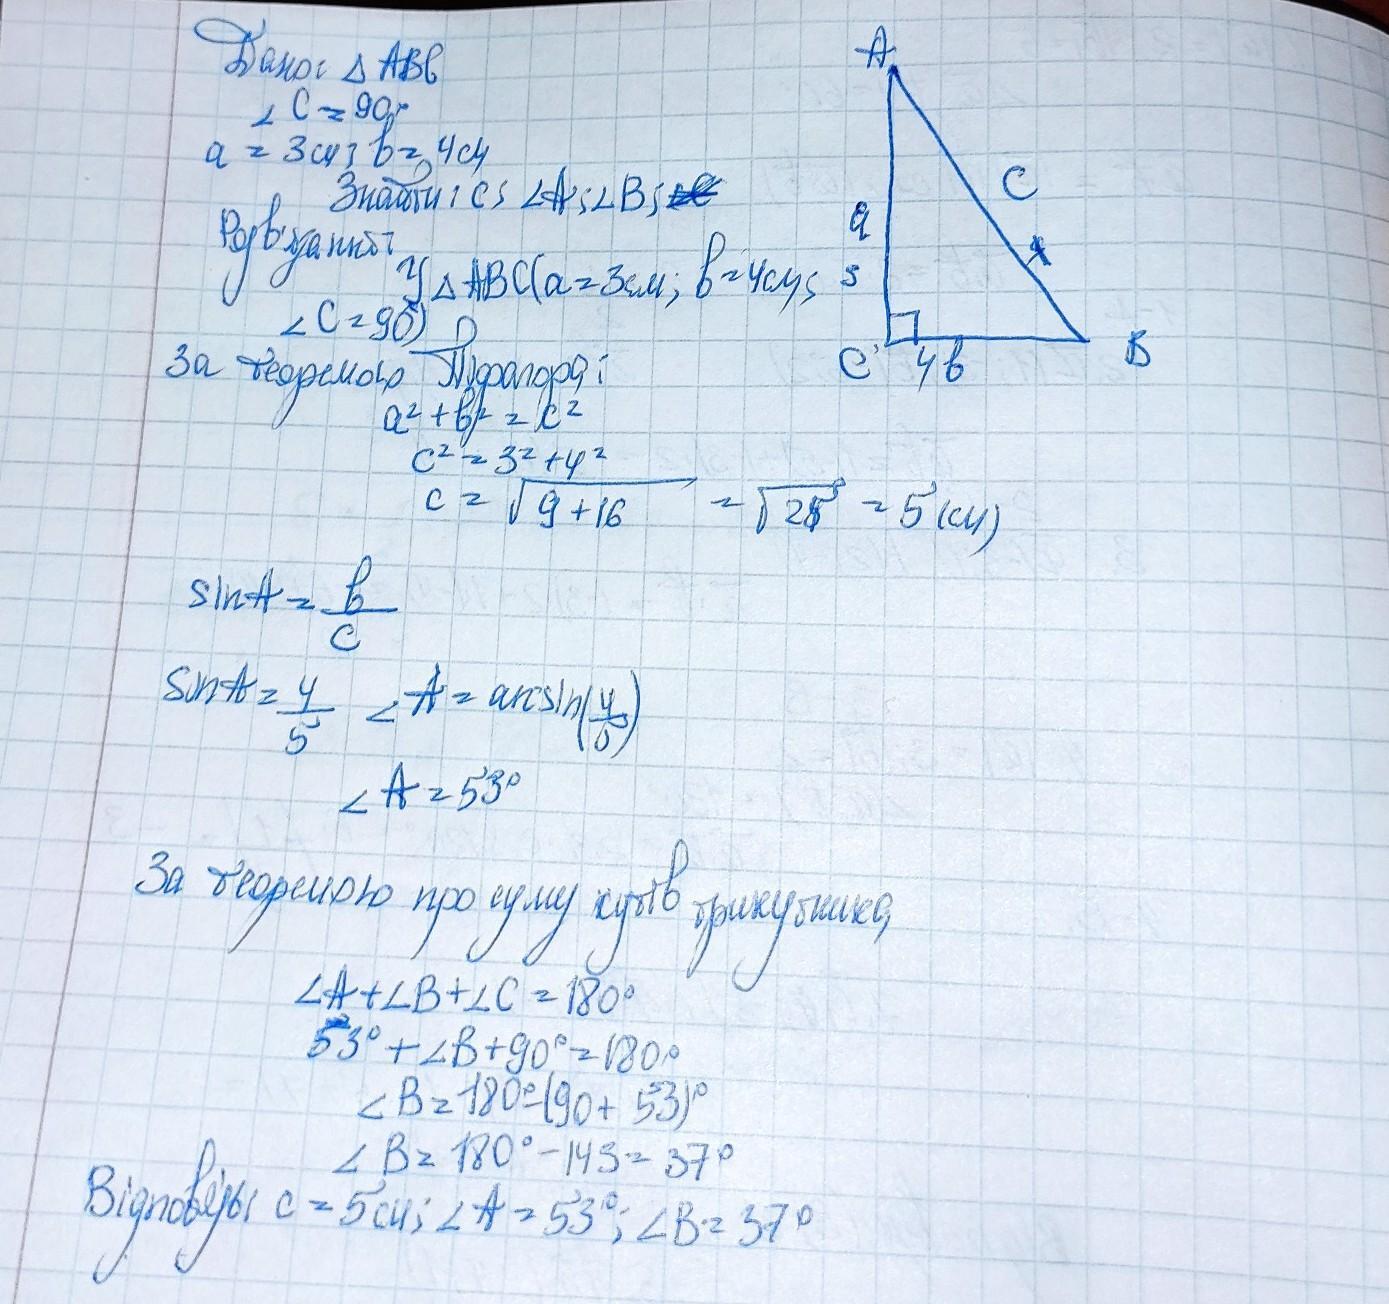 Дано: △ ABC
∠ C = 90°
a = 3см; b = 4см
Знайти: c; ∠A; ∠B;
Розв'язання:
У △ ABC (a = 3см; b = 4см;
∠ C = 90°)
За теоремою Піфагора:
a² + b² = c²
c² = 3² + 4²
c = √9 + 16 = √25 = 5 (см)
sinA = b/c
sinA = 4/5 ∠ A = arcsin(4/5)
∠ A = 53°
За теоремою про суму кутів трикутника,
∠A + ∠B + ∠C = 180°
53° + ∠B + 90° = 180°
∠ B = 180° - (90 + 53)°
∠ B = 180° - 143 = 37°
Відповідь: c = 5см; ∠A = 53°; ∠B = 37°
A
C
a
3
C
4 b
B